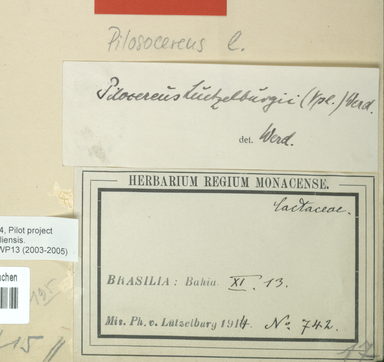 Pilosocereus l.
Pilocereus Luetzelburgii (Vpl.) Werd.
det. Werd.
HERBARIUM REGIUM MONACENSE.
Cactaceae.
4, Pilot project
liensis.
WP13 (2003-2005)
chen
BRASILIA: Bahia. XI. 13.
Mis. Ph. v. Lützelburg 1914 No. 742.
15
17